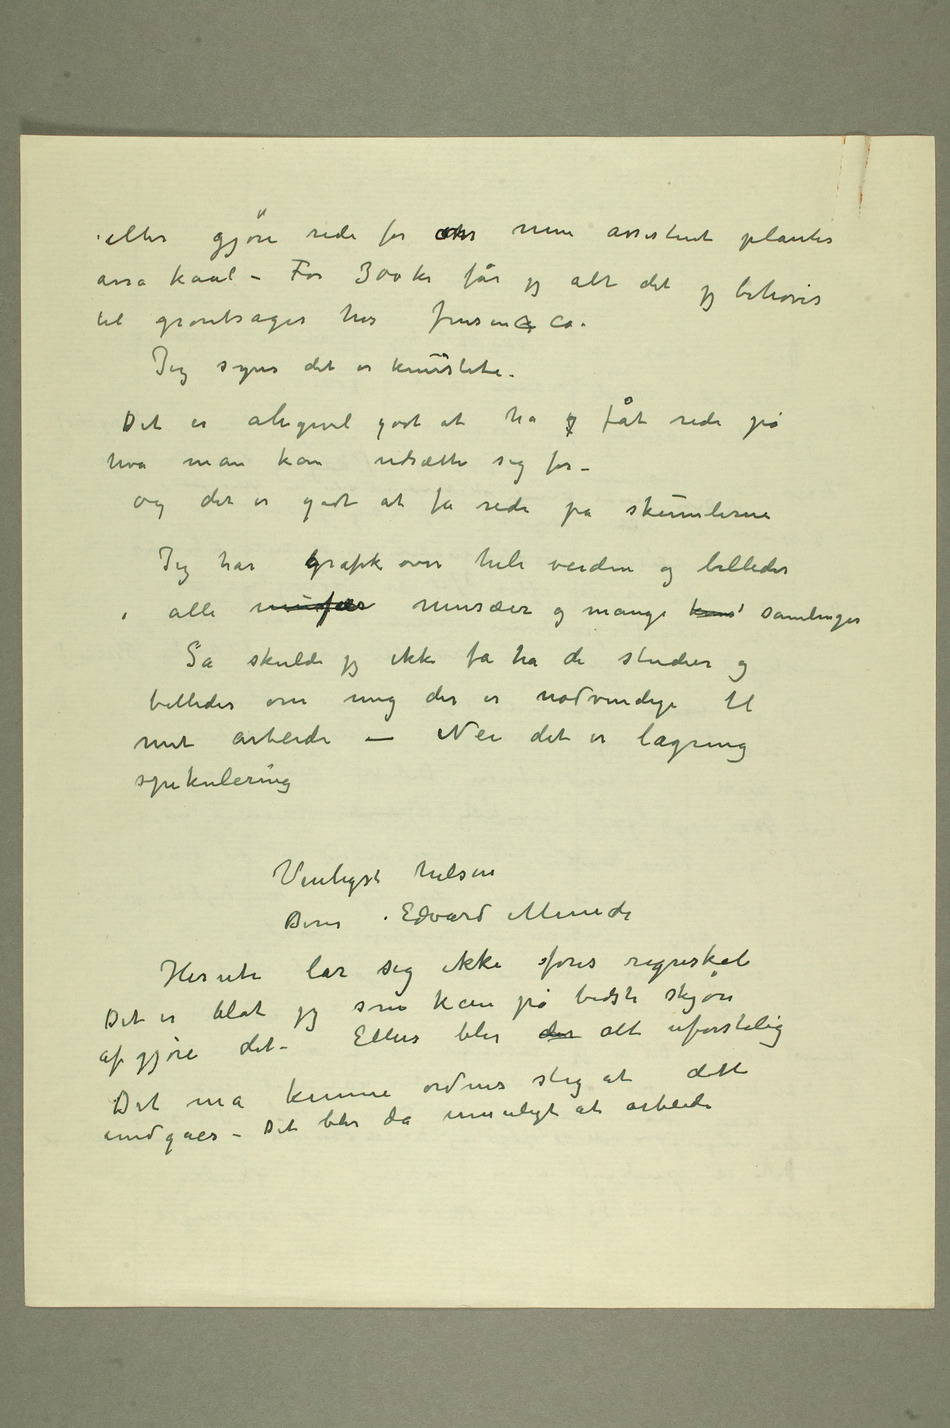 eller gjøre rede for min assistent planter
kaal – For 300 kr får jg alt det jg behøver
til grøntsager hos Jensen & Co.
Jeg synes det er
Det er alligevel godt at ha fåt rede på
hva man kan udsætte sig for –
og det er godt at få rede på skumlerne
Jeg har Grafik over hele verden og billeder
i alle musæer og mange samlinger
Så skulde jg ikke få ha de studier og
billeder om mig der er nødvendige til
mit arbeide — Nei det er lagring
spekulering
Venligst hilsen
Deres Edvard Munch
Herute lar sig ikke føres regnskab
Det er blot jg som kan på bedste skjøn
afgjøre det – Ellers blir der alt uforståelig
Det må kunne ordnes slig at dette
undgåes – Det blir da umuligt at arbeide